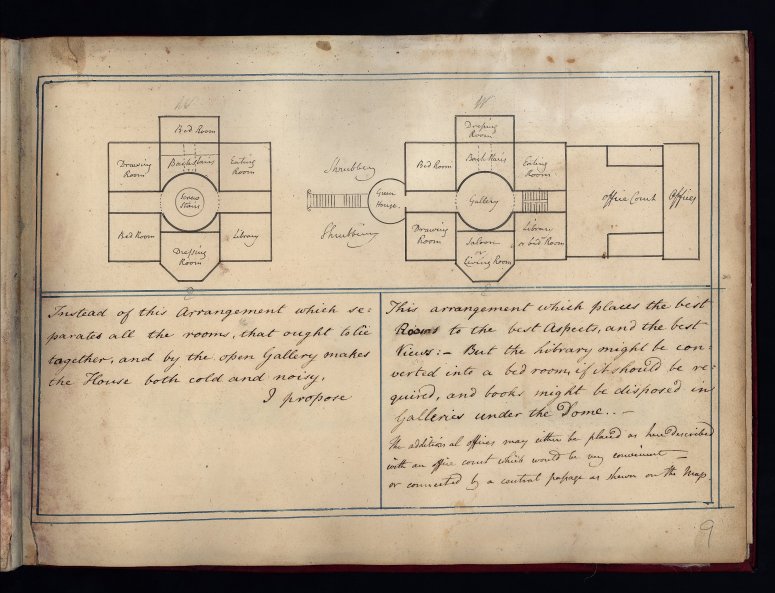 W
Bed Room
Drawing
Room
Back Stairs
Eating
Room
Screw
Stairs
Bed Room
Dressing
Room
Library
Shrubbery
Green
House
Shrubbery
W
Dressing
Room
Bed Room
Back Stairs
Eating
Room
Gallery
Drawing
Room
Saloon
or
Living Room
Library
or bed Room
Office Court
Offices
Instead of this Arrangement which se=
parates all the rooms, that ought to lie
together, and by the open Gallery makes
the House both cold and noisy,
I propose
This arrangement which places the best
Rooms to the best Aspects, and the best
Views:- But the Library might be con=
verted into a bed room, if it should be re=
quired, and books might be disposed in
Galleries under the Dome..-
The additional offices may either be placed as here described
with an office court which would be very convenient -
or connected by a central passage as shewn on the Map
9